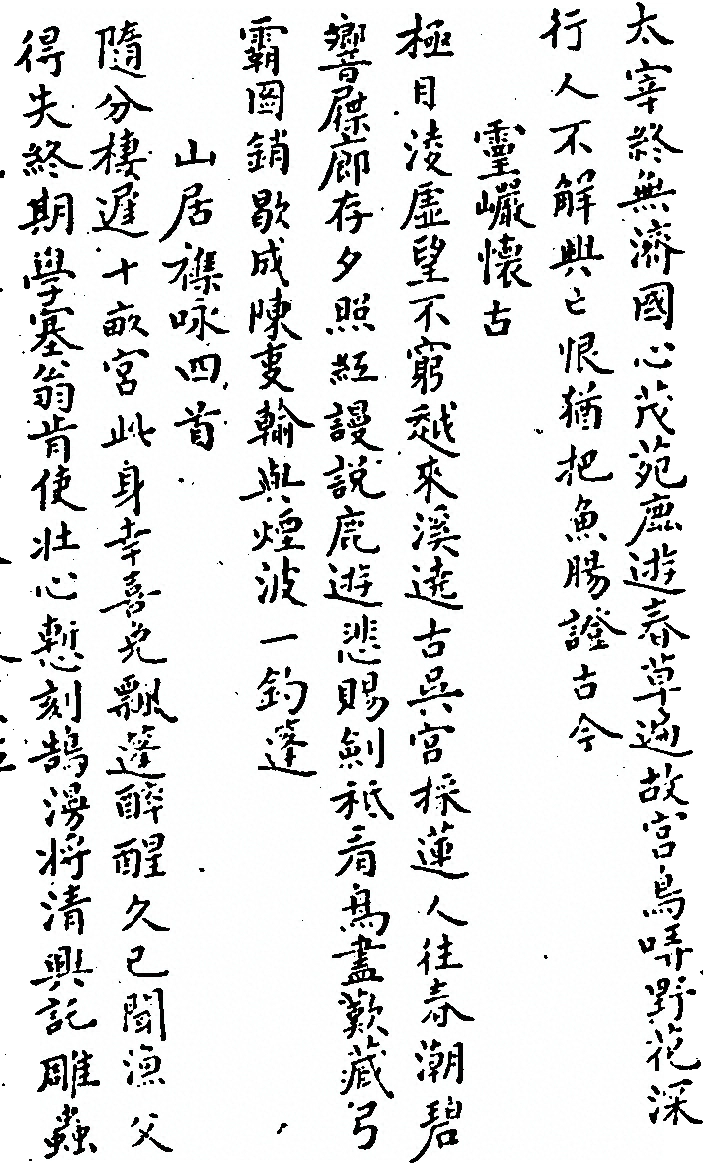 太宰終無濟國心茂苑鹿遊春草遍故宮鳥哢野花深
行人不解興亡恨猶把魚腸證古今
靈巖懷古
極目凌虛望不窮越來溪遶古吳宮採蓮人往春潮碧
響屧廊存夕照紅謾說鹿遊悲賜劍秪看鳥盡歎藏弓
霸圖銷歇成陳事輸與煙波一釣蓬
山居襍咏四首
隨分棲遲十畝宮此身幸喜免飄蓬醉醒久已聞漁父
得失終期學塞翁肯使壯心慙刻鵠漫將清興託雕蟲